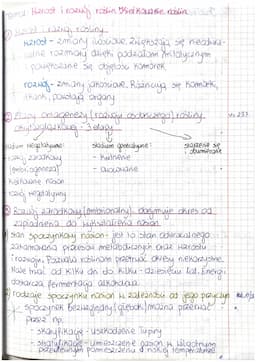 Temat: Wzrost i rozwój roślin. Kiełkowanie nasion
① Wzrost i rozwój rośliny.
wzrost - zmiany ilościowe. Zwiększają się nieodwra-
calne rozmiary dzięki podziałom mitotycznym
i powiększanie się objętości komórek
rozwój - zmiany jakościowe. Różnicują się komórki,
tkanki, powstają organy
② Etapy ontogenezy (rozwoju osobniczego) rośliny
okrytozalążkowej - 3 etapy
stadium wegetatywne
rozwój zarodkowy
(embriogeneza)
kiełkowanie nasion
rozwój wegetatywny
stadium generatywne
- kwitnienie
- owocowanie
starzenie się
i obumieranie
③ Rozwój zarodkowy (embrionalny) obejmuje okres od
zapłodnienia do wykształcenia nasion.
stan spoczynkowy nasion - jest to stan odwracalnego
zahamowania procesów metabolicznych oraz wzrostu
i rozwoju. Pozwala roślinom przetrwać okresy niekorzystne.
Może trwać od kilku dni do kilku-dziesięciu lat. Energii
dostarcza fermentacja alkoholowa.
rodzaje spoczynku nasion w zależności od jego przyczyn
- spoczynek bezwzględny (głęboki) można przerwać
przez np.
- skaryfikację - uszkodzenie łupiny
- stratyfikację - umieszczenie nasion w wilgotnym
pomieszczeniu o niskiej temperaturze